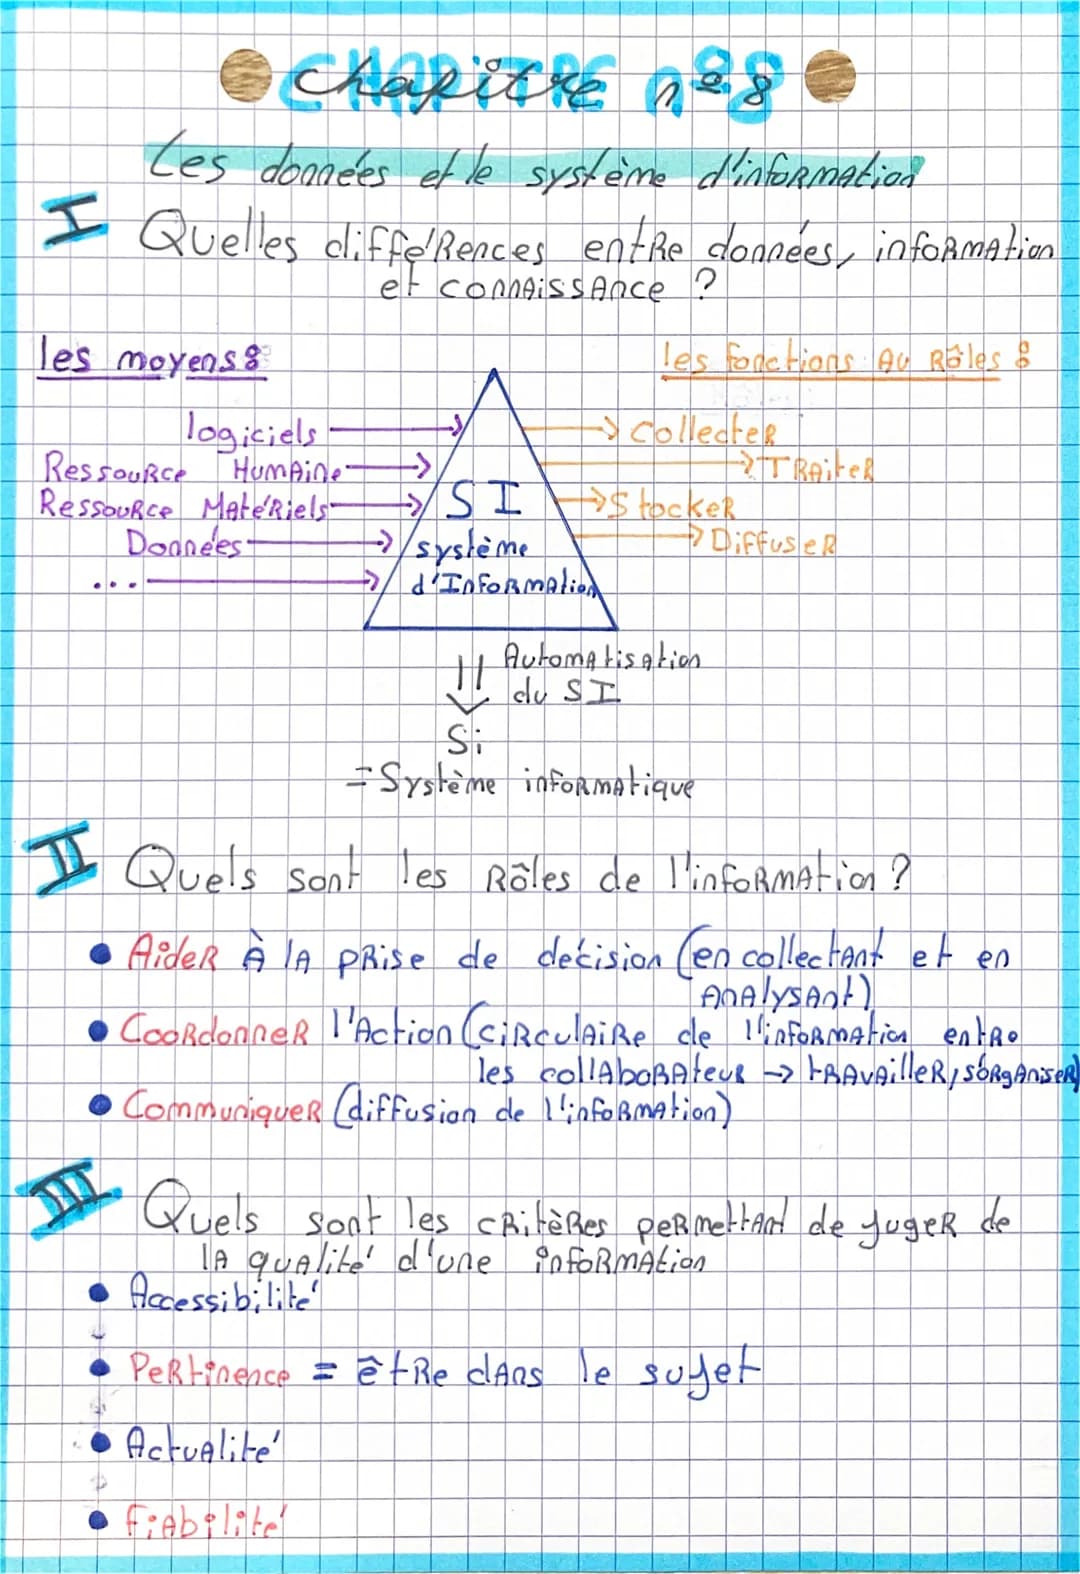 Chapitre n°8
Les données et le système d'information
I Quelles différences entre données, information
et connaissance ?
les moyens :
les fonctions Au Rôles :
logiciels
Ressource Humaine
Ressource Matériels
Données
...
SI
système
d'Information
Collecter
Traiter
Stocker
Diffuser
Automatisation
du SI
Si
= Système informatique
II Quels sont les Rôles de l'information ?
• Aider À la prise de décision (en collectant et en
Analysant)
• Coordonner l'Action (circulaire de l'information entre
les collaborateur → travailler, s'organiser)
• Communiquer (diffusion de l'information)
III Quels sont les critères permettant de juger de
la qualité d'une information
• Accessibilité
• Pertinence = être dans le sujet
• Actualité
• Fiabilité